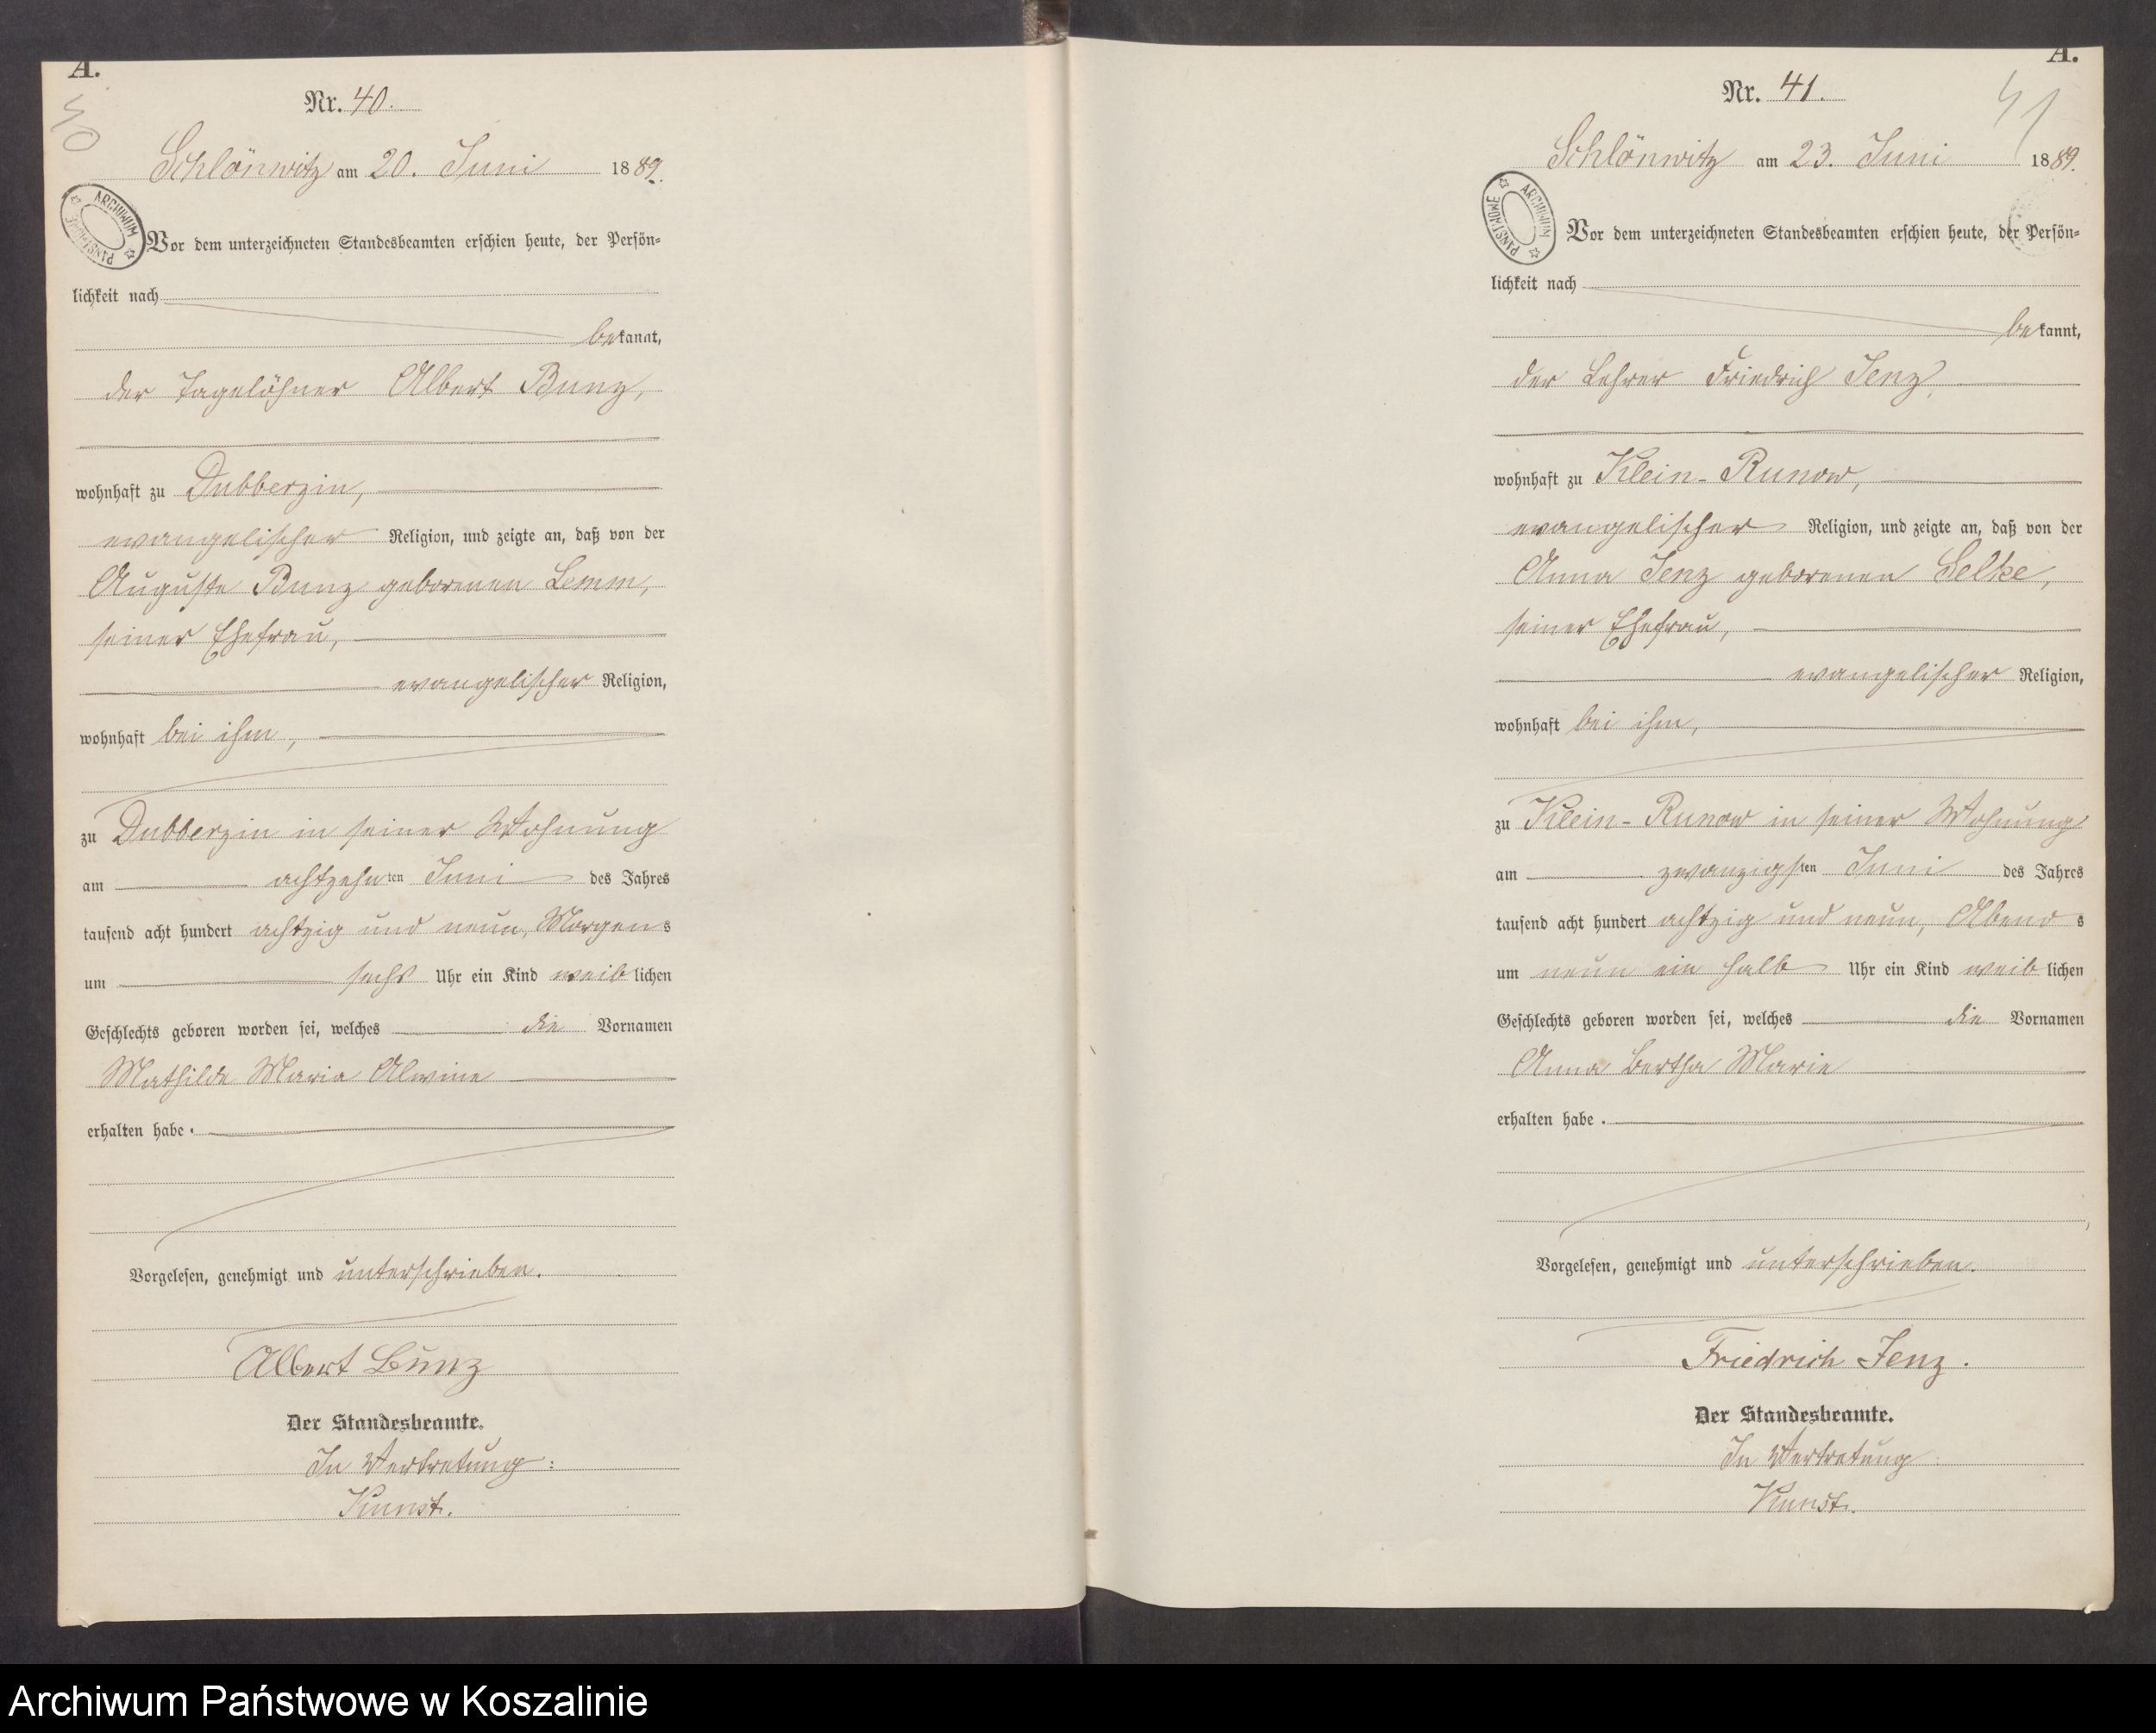 A.
40
Nr. 40.
Schlönwitz am 20. Juni 1889.
ARCHIWUM PAŃSTWOWE
Vor dem unterzeichneten Standesbeamten erschien heute, der Persön-
lichkeit nach
bekannt,
der Tagelöhner Albert Bunz,
wohnhaft zu Dubberzin,
evangelischer Religion, und zeigte an, daß von der
Auguste Bunz geborenen Lemm,
seiner Ehefrau,
evangelischer Religion,
wohnhaft bei ihm,
zu Dubberzin in seiner Wohnung
am achtzehnten Juni des Jahres
tausend acht hundert achtzig und neun, Morgens
um sechs Uhr ein Kind weiblichen
Geschlechts geboren worden sei, welches die Vornamen
Mathilde Marie Alwine
erhalten habe.
Vorgelesen, genehmigt und unterschrieben.
Albert Bunz
Der Standesbeamte.
In Vertretung:
Kunst.
A.
41
Nr. 41.
Schlönwitz am 23. Juni 1889.
ARCHIWUM PAŃSTWOWE
Vor dem unterzeichneten Standesbeamten erschien heute, der Persön-
lichkeit nach
bekannt,
der Lehrer Friedrich Jenz,
wohnhaft zu Klein-Runow,
evangelischer Religion, und zeigte an, daß von der
Anna Jenz geborenen Selke,
seiner Ehefrau,
evangelischer Religion,
wohnhaft bei ihm,
zu Klein-Runow in seiner Wohnung
am zwanzigsten Juni des Jahres
tausend acht hundert achtzig und neun, Abends
um neun ein halb Uhr ein Kind weiblichen
Geschlechts geboren worden sei, welches die Vornamen
Anna Bertha Marie
erhalten habe.
Vorgelesen, genehmigt und unterschrieben.
Friedrich Jenz.
Der Standesbeamte.
In Vertretung
Kunst.
Archiwum Państwowe w Koszalinie